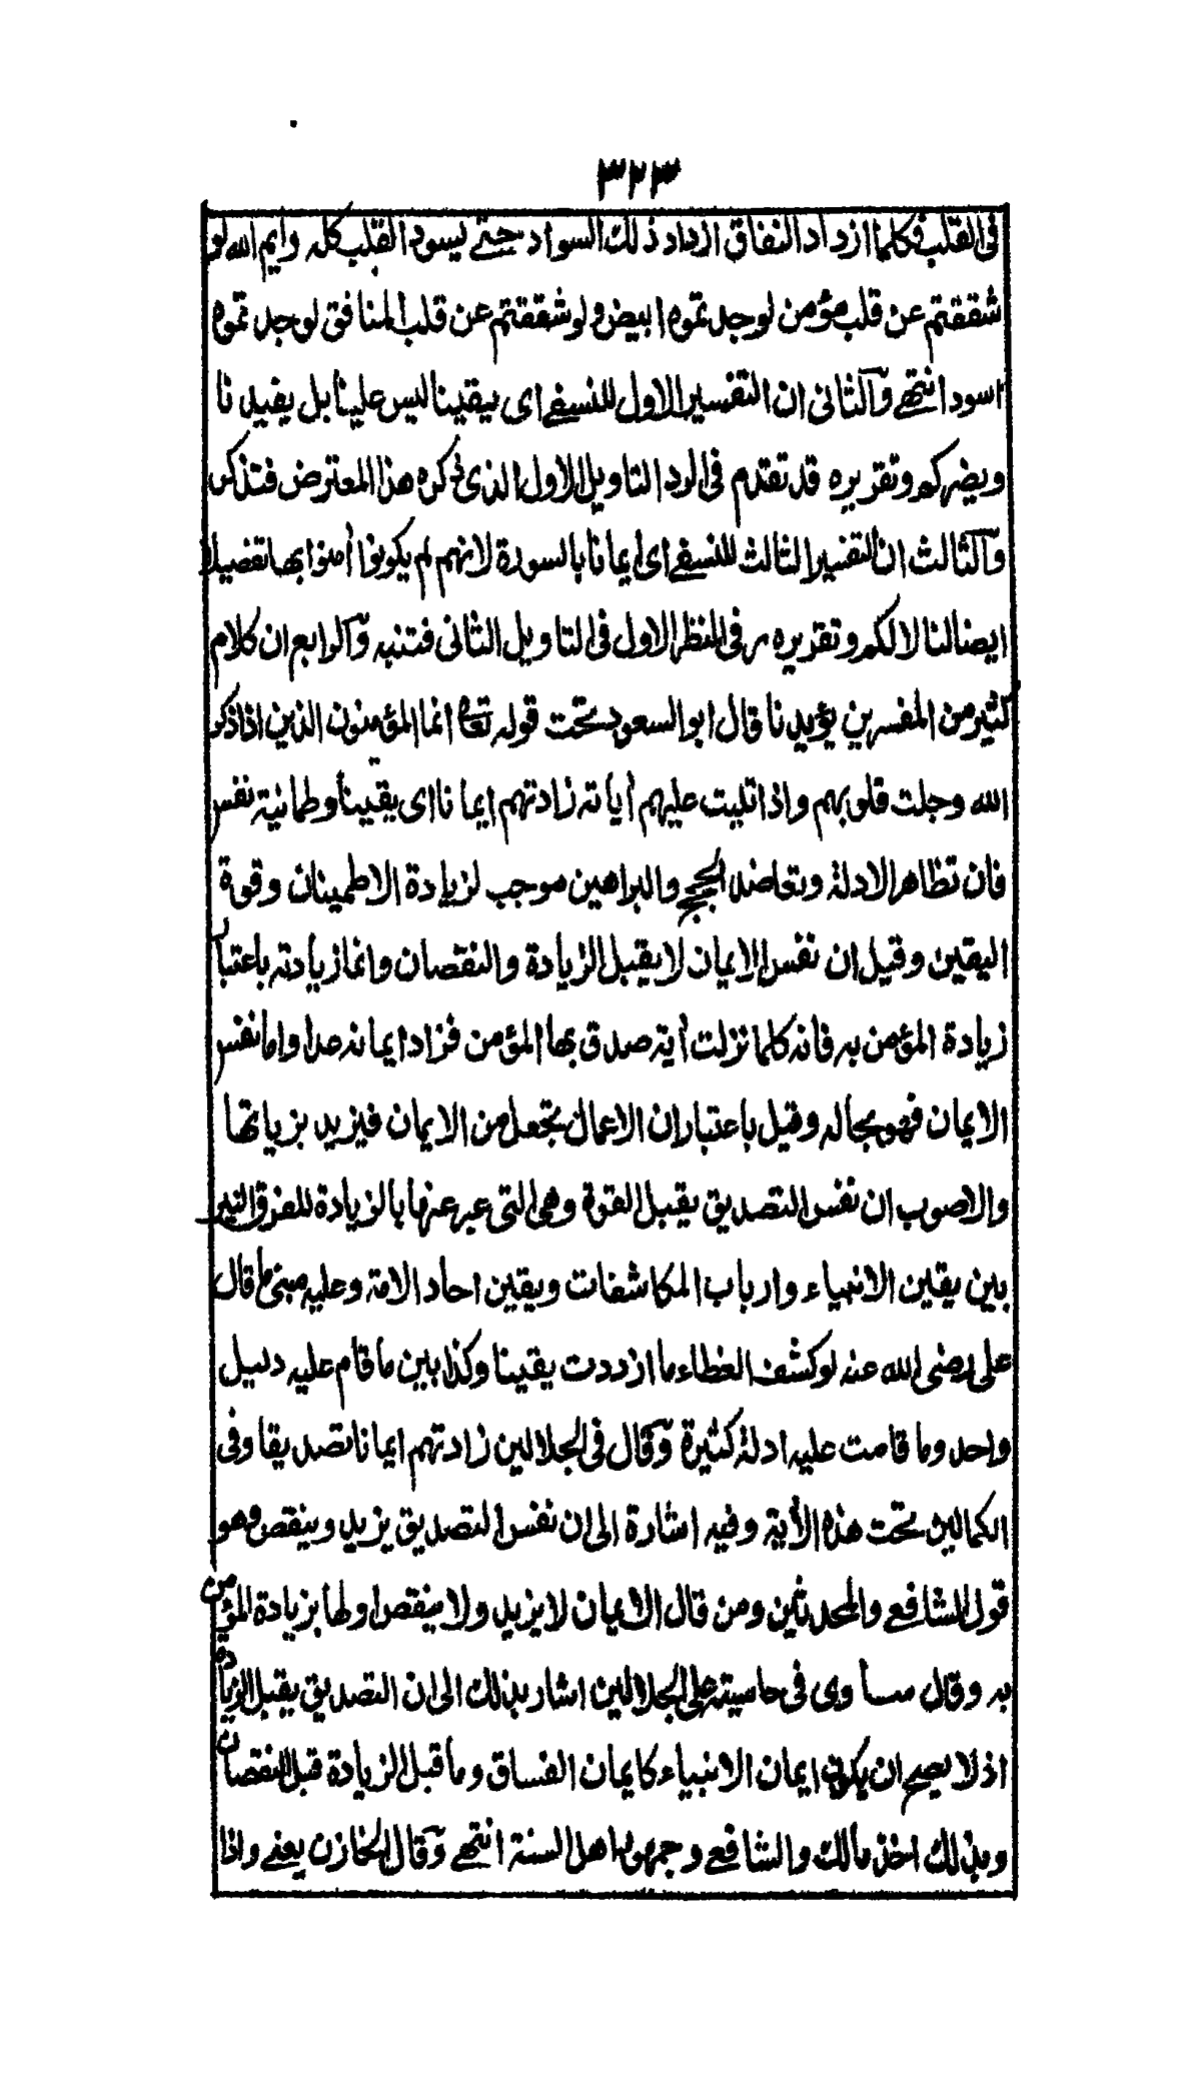 ٣٢٣
فى القلب فكلما ازداد النفاق ازداد ذلك السواد حتى يسود القلب كله وايم الله لو
شققتم عن قلب مؤمن لوجدتموه ابيض ولو شققتم عن قلب المنافق لوجدتموه
اسود انتهى والثانى ان التفسير الاول للنسفى اى يقينا ليس علينا بل يفيدنا
ويضركم وتقريره قد تقدم فى الرد التاويل الاول الذى ذكره هذا المعترض فتذكر
والثالث ان التفسير الثالث للنسفى اى ايمانا بالسورة لانهم لم يكونوا أمنوا بها تفصيلا
ايضا لنا لا لكم وتقريره مر فى النظر الاول فى التاويل الثانى فتنبه والرابع ان كلام
كثير من المفسرين يؤيدنا قال ابو السعود تحت قوله تعالى انما المؤمنون الذين اذا ذكر
الله وجلت قلوبهم واذا تليت عليهم أياته زادتهم ايمانا اى يقينا وطمانية نفس
فان تظاهر الادلة وتعاضد الحجج والبراهين موجب لزيادة الاطمينان وقوة
اليقين وقيل ان نفس الايمان لا يقبل الزيادة والنقصان وانما زيادته باعتبار
زيادة المؤمن به فانه كلما نزلت أية صدق بها المؤمن فزاد ايمانه عددا واما نفس
الايمان فهو بحاله وقيل باعتبار ان الاعمال تجعل من الايمان فيزيد بزياتها
والاصوب ان نفس التصديق يقبل القوة وهى التى عبر عنها بالزيادة للفرق النير
بين يقين الانبياء وارباب المكاشفات ويقين احاد الامة وعليه مبنى ما قال
على رضى الله عنه لو كشف الغطاء ما ازددت يقينا وكذا بين ما قام عليه دليل
واحد وما قامت عليه ادلة كثيرة وقال فى الجلالين زادتهم ايمانا تصديقا وفى
الكمالين تحت هذه الأية وفيه اشارة الى ان نفس التصديق يزيد وينقص وهو
قول الشافعى والمحدثين ومن قال الايمان لا يزيد ولا ينقص اولها بزيادة المؤمن
به وقال صاوى فى حاسيته على الجلالين اشار بذلك الى ان التصديق يقبل الزيادة
اذ لا يصح ان يكون ايمان الانبياء كايمان الفساق وما قبل الزيادة قبل النقصان
وبذلك اخذ مالك والشافعى وجمهور اهل السنة انتهى وقال الخازن يعنى واذا